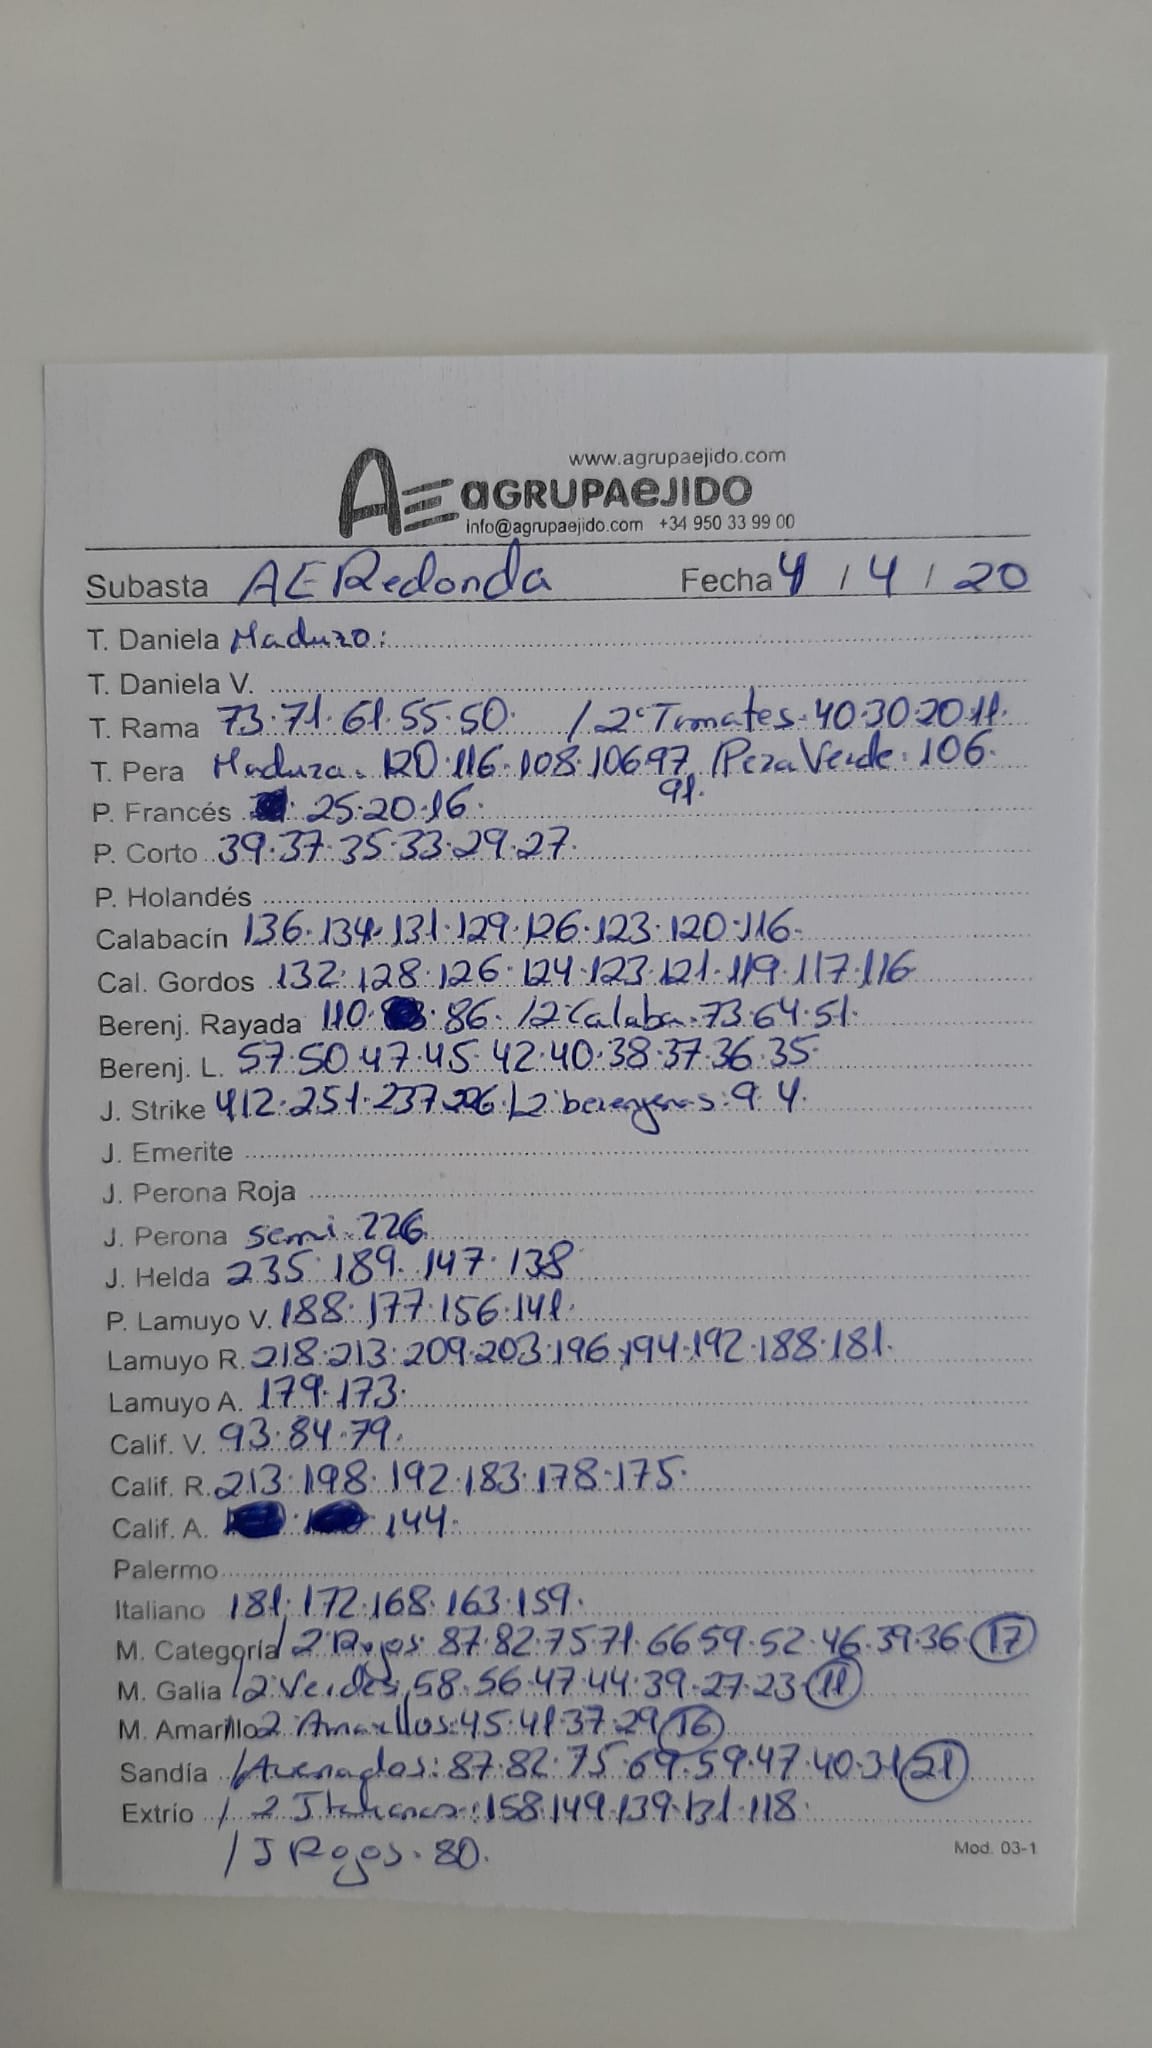 www.agrupaejido.com
AE aGRUPAeJIDO
info@agrupaejido.com +34 950 33 99 00
Subasta AE Redonda Fecha 4 / 4 / 20
T. Daniela Maduro:
T. Daniela V.
T. Rama 73.71.61.55.50. / 2ª Tomates. 40.30.20.11.
T. Pera Madura. 120.116.108.106.97 / Pera Verde. 106.
91.
P. Francés 25.20.16.
P. Corto 39.37.35.33.29.27.
P. Holandés
Calabacín 136.134.131.129.126.123.120.116.
Cal. Gordos 132.128.126.124.123.121.119.117.116
Berenj. Rayada 110. 86. / 2ª Calaba. 73.64.51.
Berenj. L. 57.50.47.45.42.40.38.37.36.35.
J. Strike 412.251.237.226. / 2 berenjenas: 9.4.
J. Emerite
J. Perona Roja
J. Perona semi. 226.
J. Helda 235.189.147.138
P. Lamuyo V. 188.177.156.141.
Lamuyo R. 218.213.209.203.196.194.192.188.181.
Lamuyo A. 179.173.
Calif. V. 93.84.79.
Calif. R. 213.198.192.183.178.175.
Calif. A. 144.
Palermo
Italiano 181.172.168.163.159.
M. Categoría / 2ª Rojos: 87.82.75.71.66.59.52.46.39.36. 17
M. Galia / 2ª Verdes. 58.56.47.44.39.27.23. 11
M. Amarillo 2 Amarillos: 45.41.37.29. 16
Sandía / Asenados: 87.82.75.69.59.47.40.31. 21
Extrío / 2 Italianos: 158.149.139.131.118.
/ J Rojos. 80.
Mod. 03-1